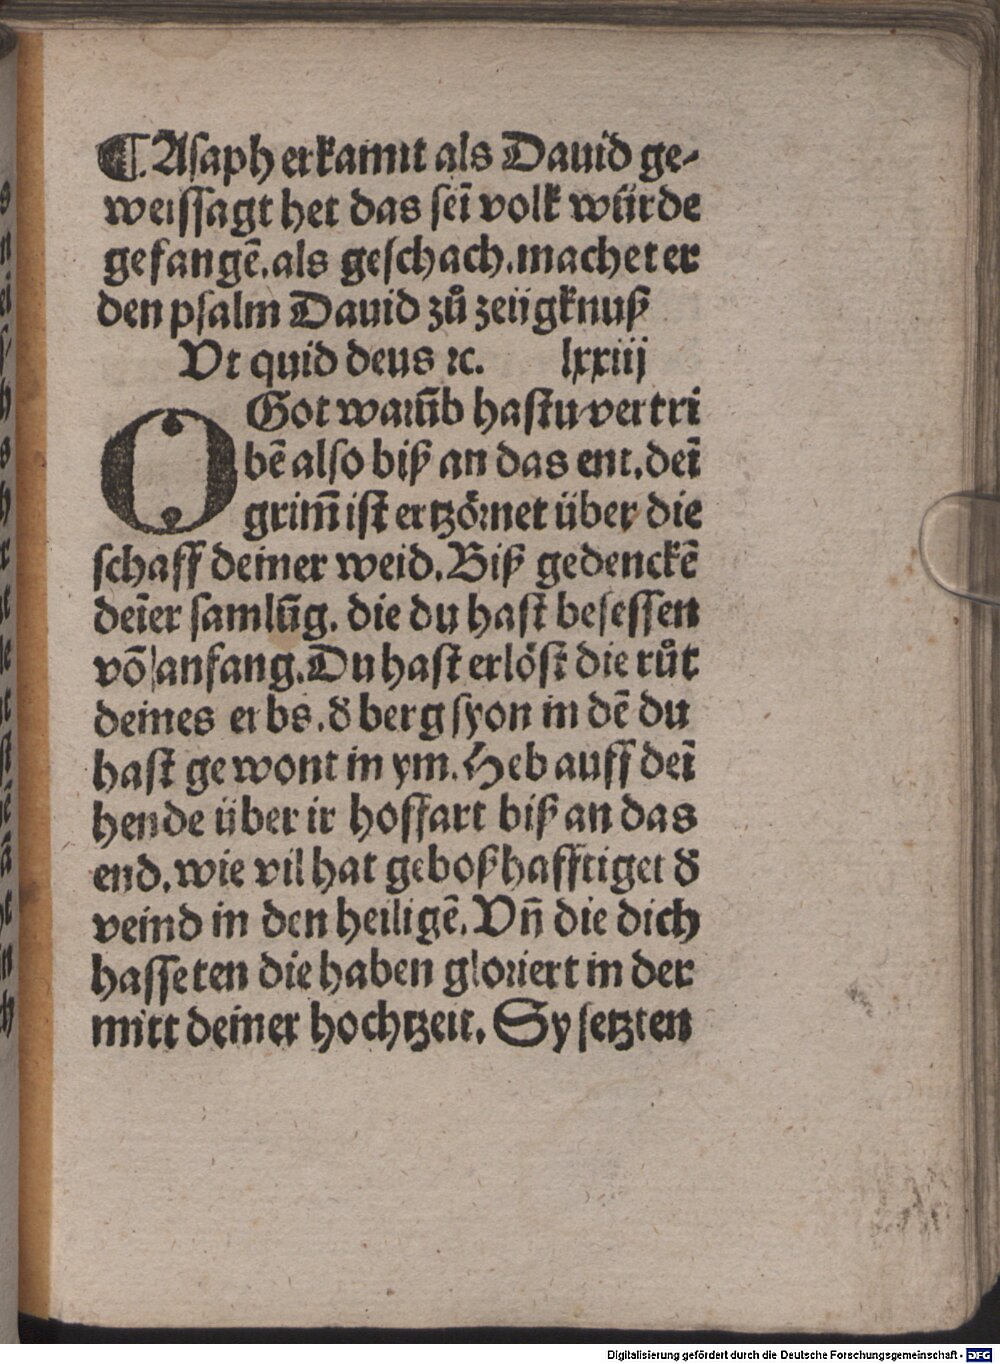 ¶ Aſaph erkannt als Dauid ge-
weiſſagt het das ſeī volk würde
gefangē. als geſchach. machet er
den pſalm Dauid zů zeügknuß
Vt quid deus ꝛc. lxxiij
O Got warūb haſtu vertri
bē alſo biß an das ent. deī
grim̄ iſt ertzörnet über die
ſchaff deiner weid. Biß gedenckē
deīer ſamlūg. die du haſt beſeſſen
vō anfang. Du haſt erlöſt die růt
deines erbs. d̄ berg ſyon in dē du
haſt gewont in ym. Heb auff deī
hende über ir hoffart biß an das
end. wie vil hat geboßhafftiget d̄
veind in den heiligē. Vn̄ die dich
haſſeten die haben gloriert in der
mitt deiner hochtzeit. Sy ſetzten
Digitalisierung gefördert durch die Deutsche Forschungsgemeinschaft - DFG